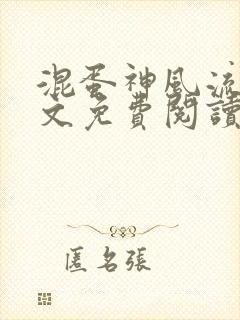 混蛋神風流
文免費閱讀
匿名張